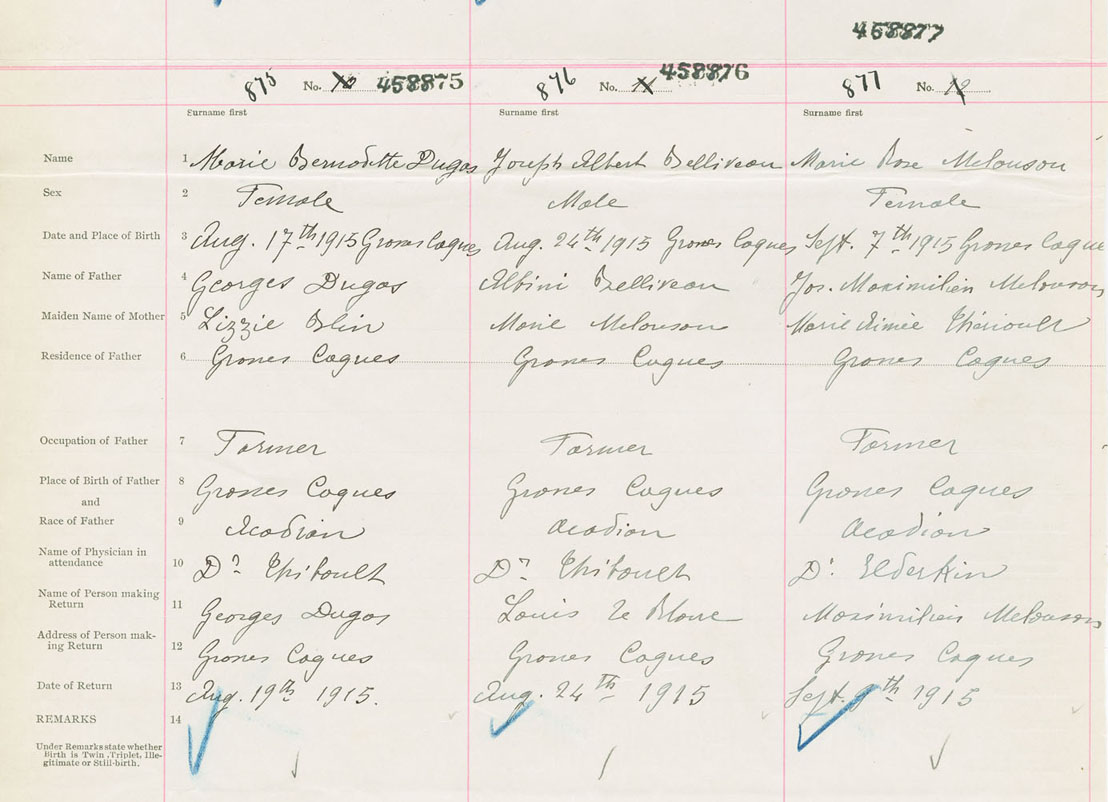 458877
875 No. 458875 876 No. 458876 877 No.
Surname first Surname first Surname first
Name 1 Marie Bernadette Dugas Joseph Albert Belliveau Marie Rose Melanson
Sex 2 Female Male Female
Date and Place of Birth 3 Aug. 17th 1915 Grosses Coques Aug. 24th 1915 Grosses Coques Sept. 7th 1915 Grosses Coques
Name of Father 4 Georges Dugas Albini Belliveau Jos. Maximilien Melanson
Maiden Name of Mother 5 Lizzie Blin Marie Melanson Marie Aimée Thériault
Residence of Father 6 Grosses Coques Grosses Coques Grosses Coques
Occupation of Father 7 Farmer Farmer Farmer
Place of Birth of Father 8 Grosses Coques Grosses Coques Grosses Coques
and
Race of Father 9 Acadian Acadian Acadian
Name of Physician in
attendance 10 Dr Thibault Dr Thibault Dr. Elderkin
Name of Person making
Return 11 Georges Dugas Louis Le Blanc Maximilien Melanson
Address of Person mak-
ing Return 12 Grosses Coques Grosses Coques Grosses Coques
Date of Return 13 Aug. 19th 1915. Aug. 24th 1915 Sept. 9th 1915
REMARKS 14
Under Remarks state whether
Birth is Twin, Triplet, Ille-
gitimate or Still-birth.